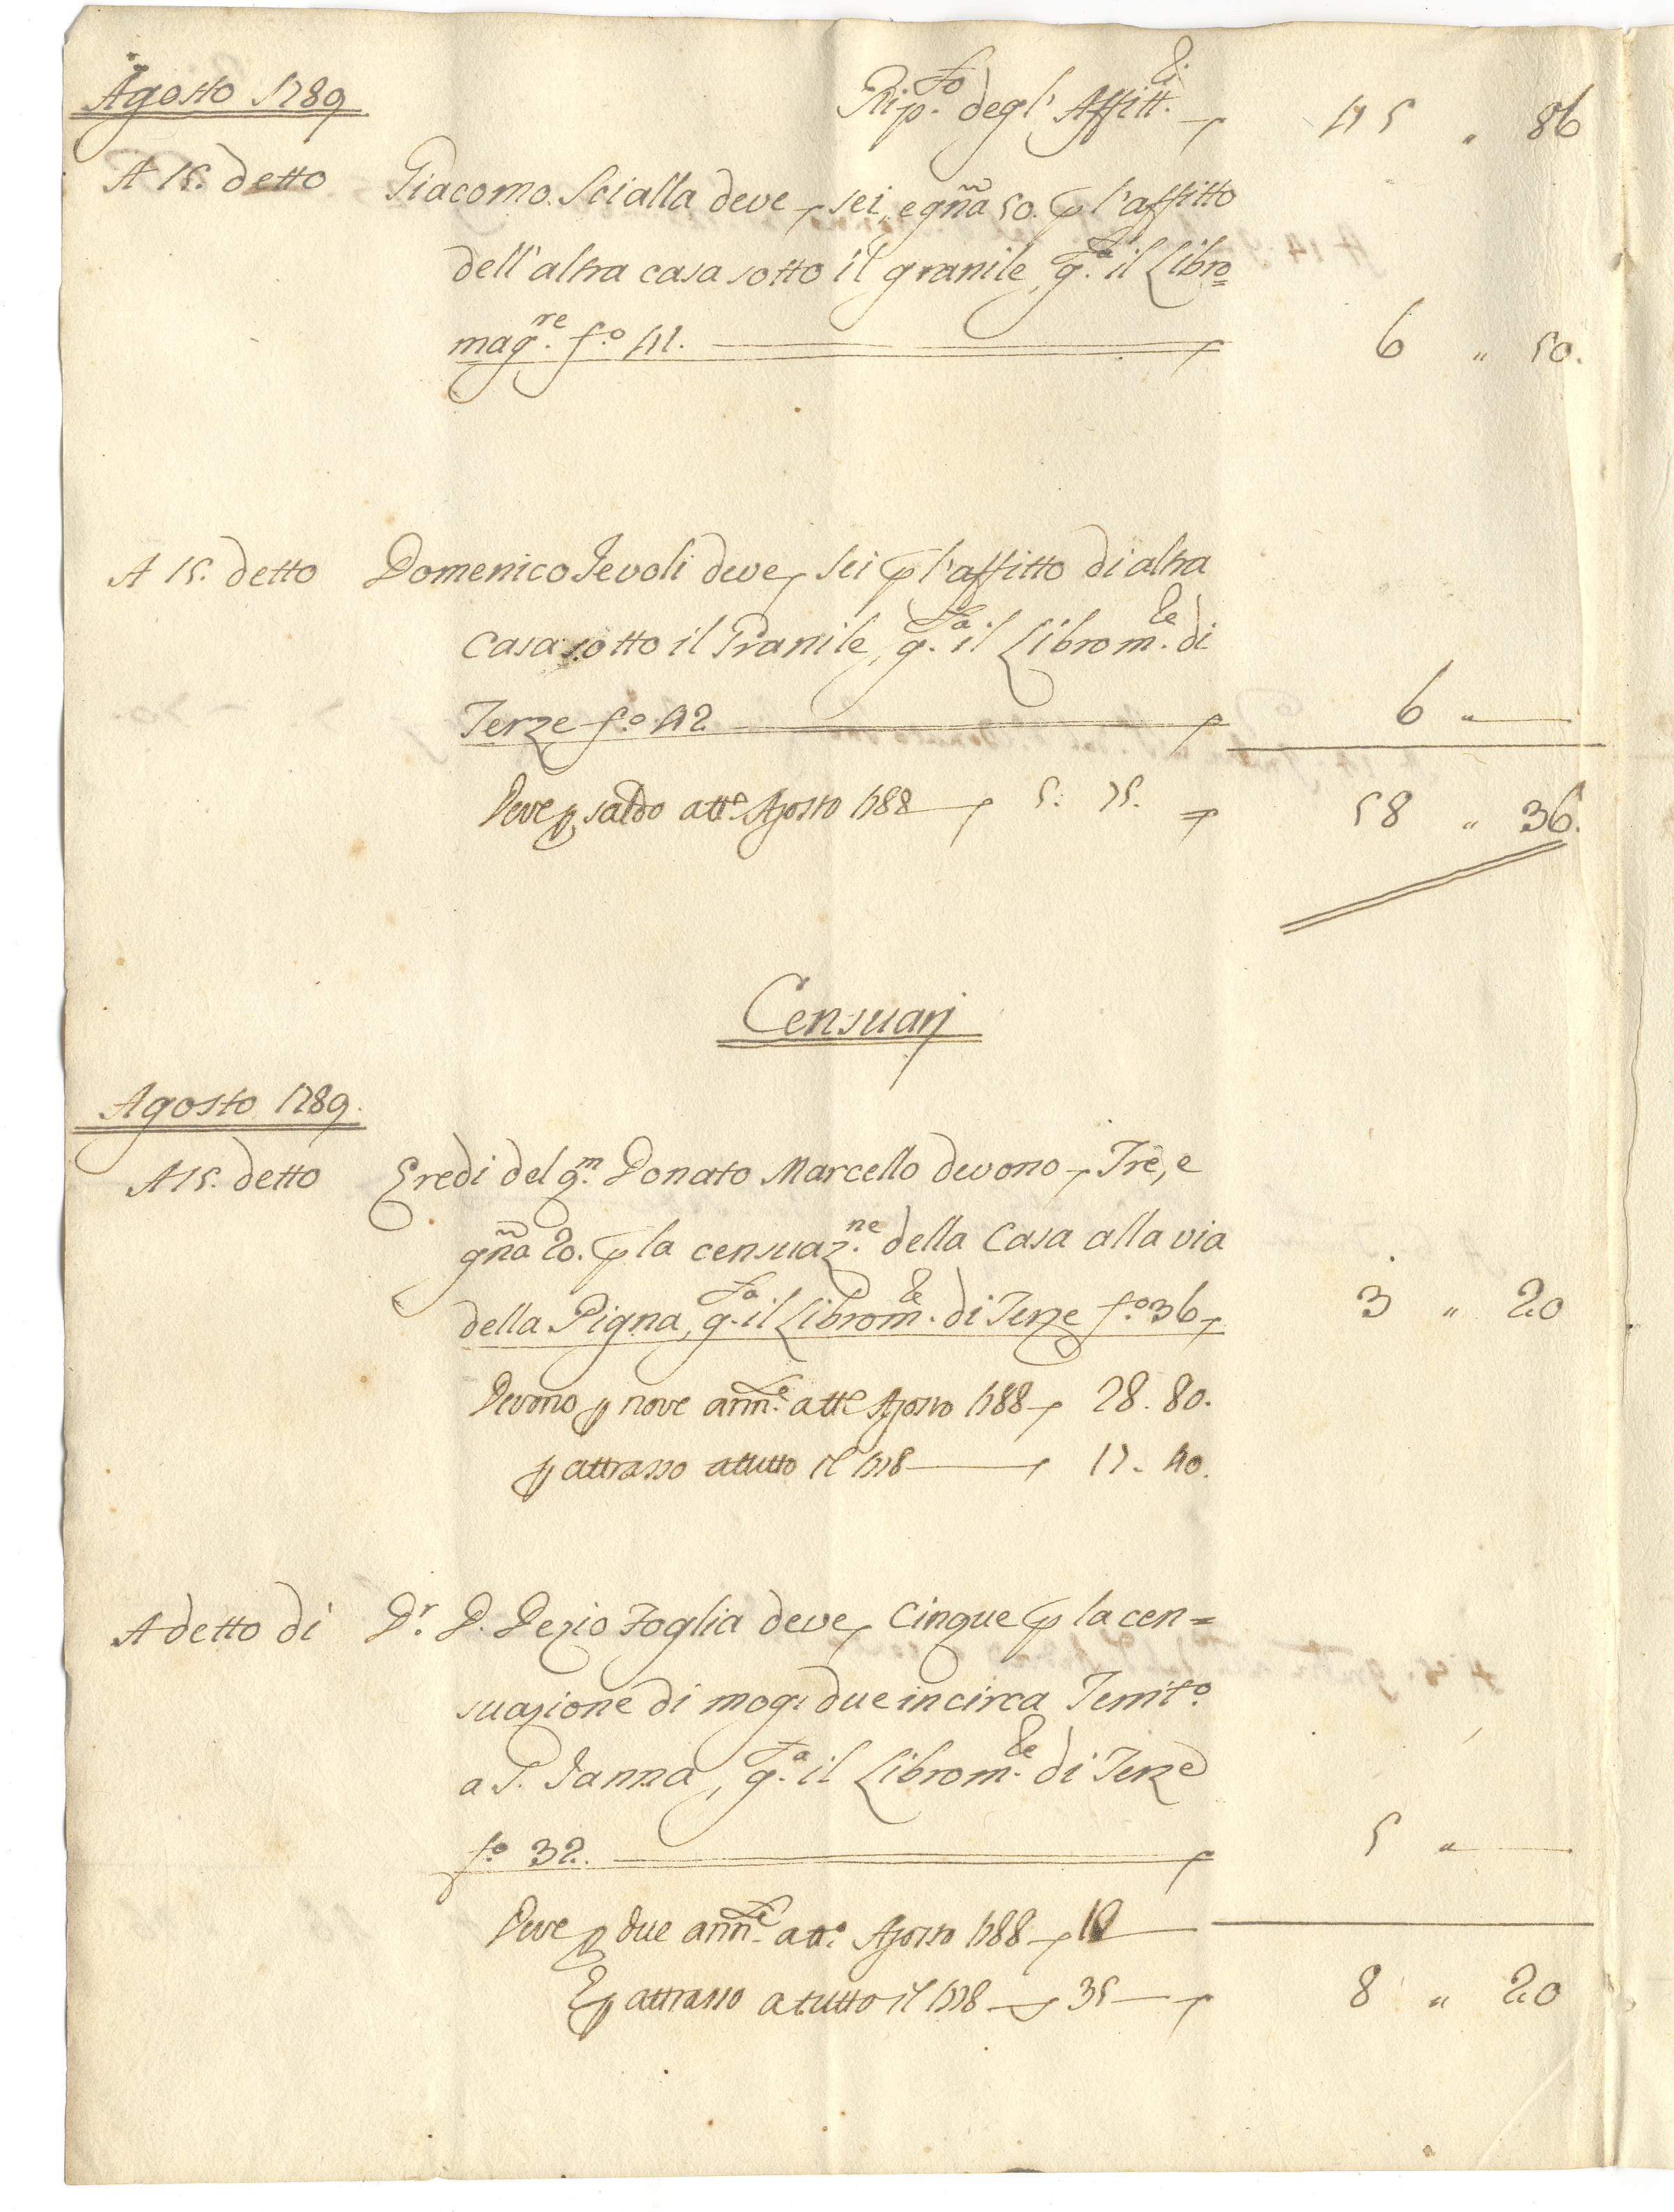 Agosto 1789
Rip.to degl' Affitt.i 45 " 86
A 15. detto Giacomo Scialla deve sei, e gña 50. p l'affitto
dell'altra casa sotto il granile, g.sta il Libro=
mag.re f.o 41. 6 " 50.
A 15. detto Domenico Jevoli deve sei p l'affitto di altra
casa sotto il Granile, g.sta il Libro m.le di
Terze f.o 42 6 "
Deve p saldo att.o Agosto 1788 5. 75. 58 " 36.
Censuarj
Agosto 1789.
A 15. detto Eredi del q.m Donato Marcello devono Trè, e
gña 20. p la censuaz.ne della Casa alla via
della Pigna, g.sta il Libro m.le di Terze f.o 36 3 " 20
Devono p nove ann.te att.o Agosto 1788 28. 80.
p attrasso a tutto il 1778 17. 40.
A detto di D.r D. Dezio Foglia deve Cinque p la cen=
suazione di mog. due incirca Territ.o
a S. Janna, g.sta il Libro m.le di Terze
f.o 32. 5 "
Deve p due ann.te att.o Agosto 1788 10
E p attrasso a tutto il 1778 35 8 " 20